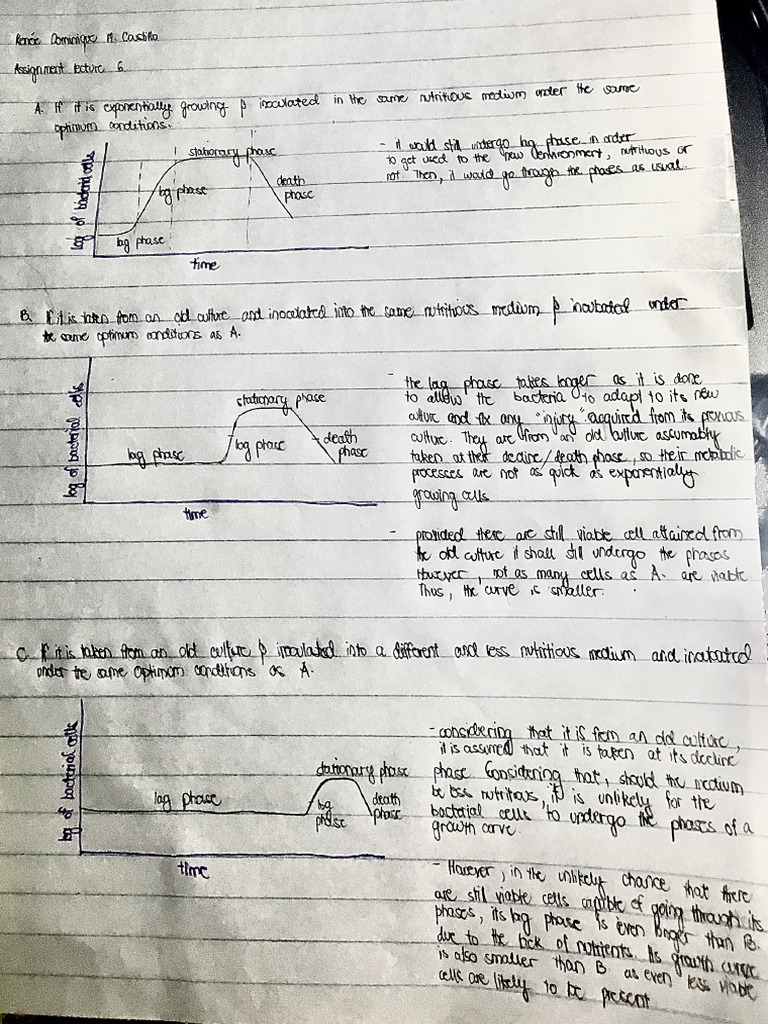 Renée Dominique M. Castillo
Assignment lecture 6
A. If it is exponentially growing & inoculated in the same nutritious medium under the same
optimum conditions.
log of bacterial cells
stationary phase
log phase
death
phase
lag phase
time
- it would still undergo lag phase in order
to get used to the new environment, nutritious or
not. Then, it would go through the phases as usual.
B. If it is taken from an old culture and inoculated into the same nutritious medium & incubated under
the same optimum conditions as A.
log of bacterial cells
stationary phase
lag phase
log phase
death
phase
time
- the lag phase takes longer as it is done
to allow the bacteria to adapt to its new
culture and fix any "injury" acquired from its previous
culture. They are from an old culture assumably
taken at their decline/death phase, so their metabolic
processes are not as quick as exponentially
growing cells
- provided there are still viable cell attained from
the old culture it shall still undergo the phases
However, not as many cells as A. are viable
Thus, the curve is smaller.
C. If it is taken from an old culture & inoculated into a different and less nutritious medium and incubated
under the same optimum conditions as A.
log of bacterial cells
stationary phase
lag phase
log
phase
death
phase
time
- considering that it is from an old culture,
it is assumed that it is taken at its decline
phase. Considering that, should the medium
be less nutritious, it is unlikely for the
bacterial cells to undergo the phases of a
growth curve.
- However, in the unlikely chance that there
are still viable cells capable of going through its
phases, its lag phase is even longer than B.
due to the lack of nutrients. Its growth curve
is also smaller than B as even less viable
cells are likely to be present